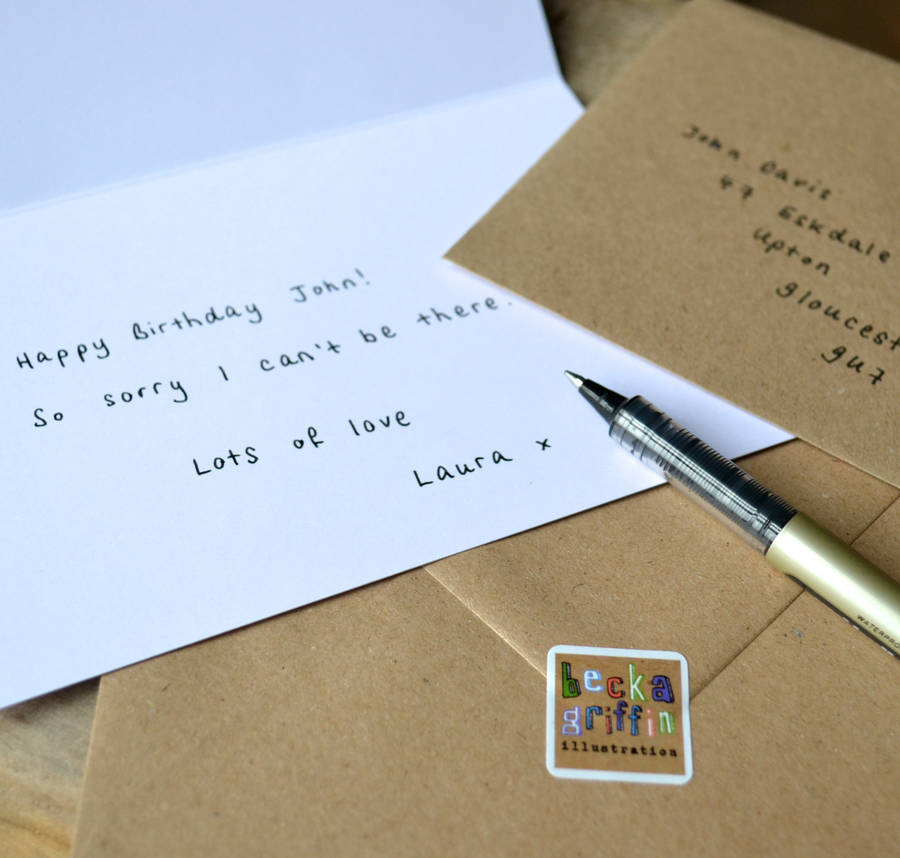 Happy Birthday John!
So sorry I can't be there.
Lots of love
Laura x
John Davis
47 Eskdale
Upton
Gloucest
GU7
WATERPRO
becka
griffin
illustration